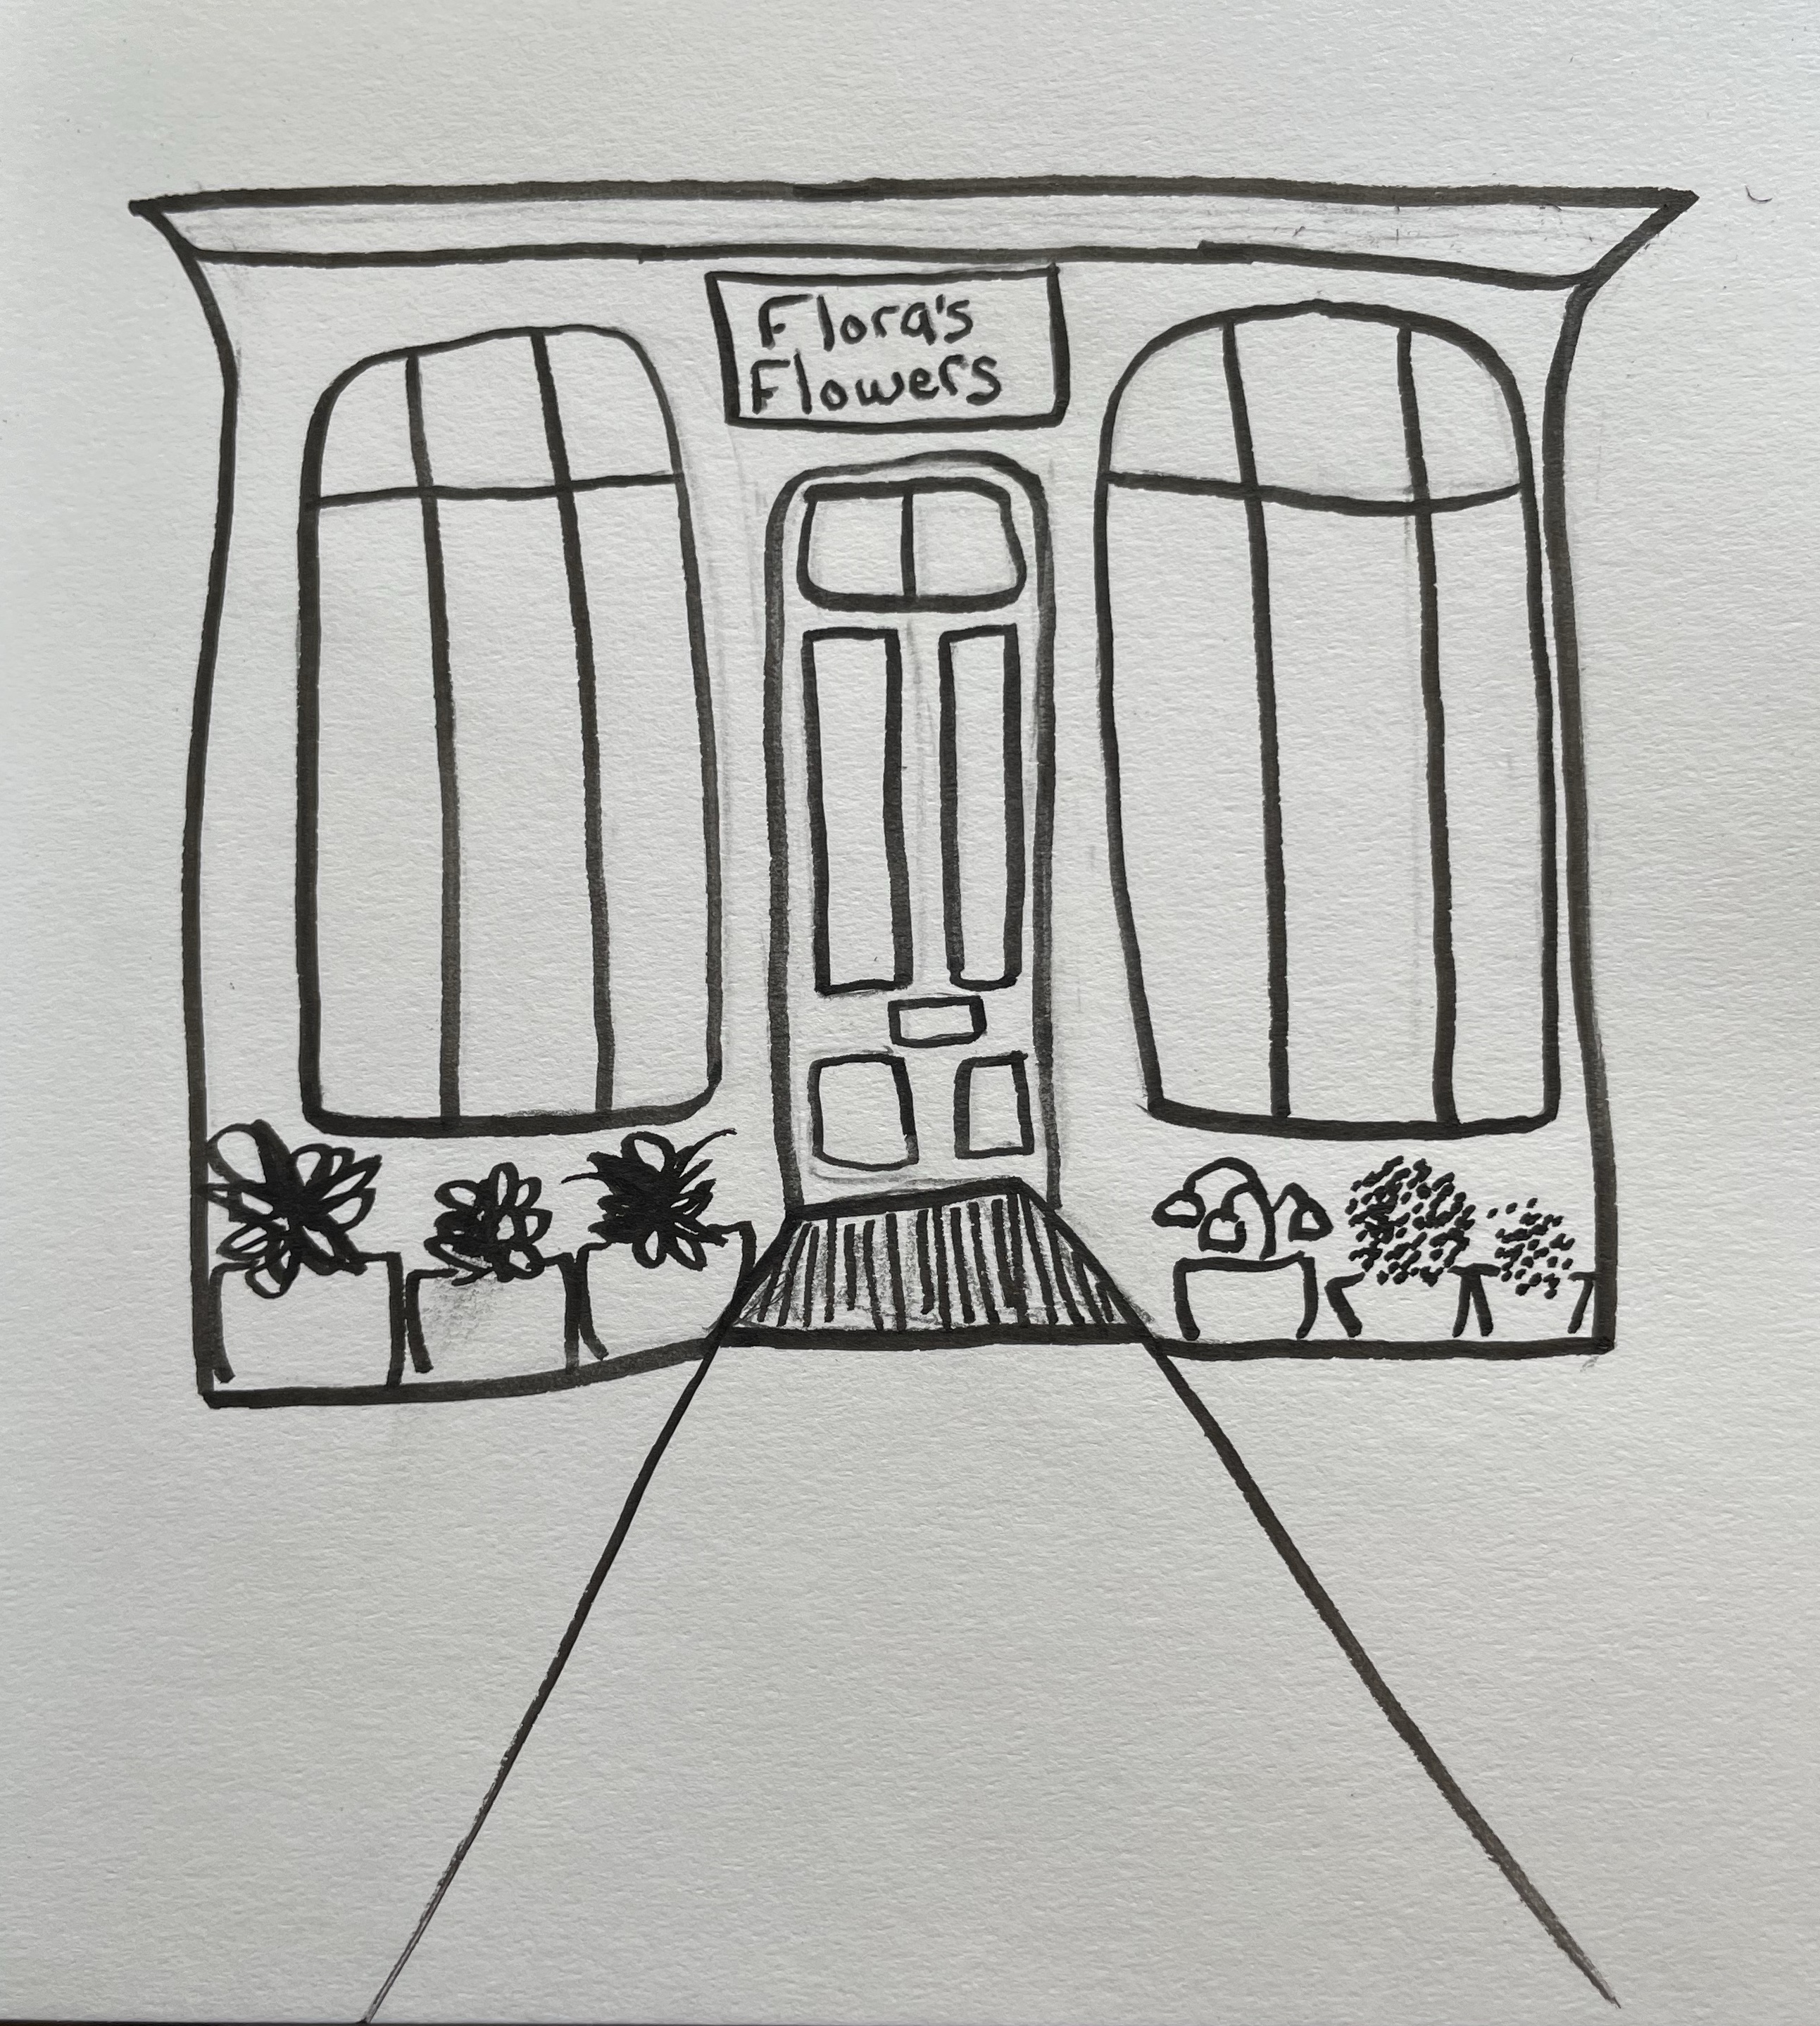 Flora's
Flowers